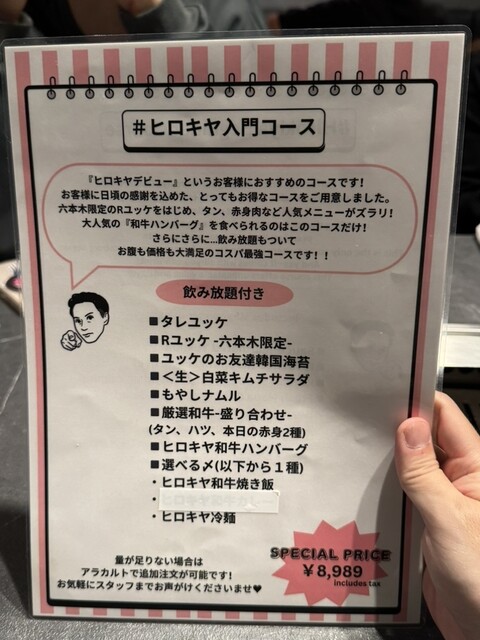 #ヒロキヤ入門コース
『ヒロキヤデビュー』というお客様におすすめのコースです!
お客様に日頃の感謝を込めた、とってもお得なコースをご用意しました。
六本木限定のRユッケをはじめ、タン、赤身肉など人気メニューがズラリ!
大人気の『和牛ハンバーグ』を食べられるのはこのコースだけ!
さらにさらに…飲み放題もついて
お腹も価格も大満足のコスパ最強コースです!!
飲み放題付き
■タレユッケ
■Rユッケ -六本木限定-
■ユッケのお友達韓国海苔
■<生>白菜キムチサラダ
■もやしナムル
■厳選和牛-盛り合わせ-
(タン、ハツ、本日の赤身2種)
■ヒロキヤ和牛ハンバーグ
■選べる〆(以下から1種)
・ヒロキヤ和牛焼き飯
・ヒロキヤ冷麺
量が足りない場合は
アラカルトで追加注文が可能です!
お気軽にスタッフまでお声がけくださいませ♥
SPECIAL PRICE
¥8,989
includes tax